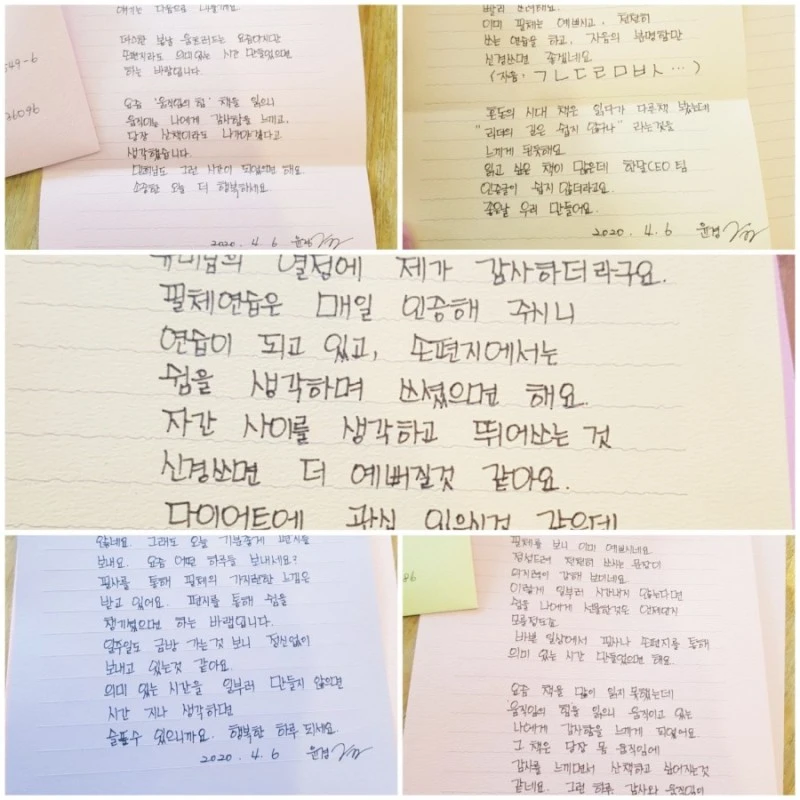 따스한 봄날 움츠려드는 요즘이지만
손편지라도 의미있는 시간 만들었으면
하는 바람입니다.
549-6
36096
요즘 '움직임의 힘' 책을 읽으니
움직이는 나에게 감사함을 느끼고,
당장 산책이라도 나가야겠다고
생각했습니다.
그런 시간이 되었으면 해요.
소중한 오늘 더 행복하세요.
2020. 4. 6 윤경
빨리 쓰려해요.
이미 필체는 예쁘시고, 천천히
쓰는 연습을 하고, 자음의 분명함만
신경쓰면 좋겠네요.
(자음: ㄱㄴㄷㄹㅁㅂㅅ…)
시대 책은 읽다가 다른책 봤는데
"리더의 길은 쉽지 않다나" 라는것을
느끼게 된듯해요.
읽고 싶은 책이 많은데 한달CEO 팀
인증글이 쉽지 않더라고요.
좋은날 우리 만들어요.
2020. 4. 6 윤경
열정에 제가 감사하더라구요.
필체연습은 매일 인증해 주시니
연습이 되고 있고, 손편지에서는
쉼을 생각하며 쓰셨으면 해요.
자간 사이를 생각하고 뛰어쓰는 것
신경쓰면 더 예뻐질것 같아요.
다이어트에 관심 있으신것 같은데
않네요. 그래도 오늘 기분좋게 편지를
보내요. 요즘 어떤 하루들 보내세요?
필사를 통해 필체의 가지런한 느낌은
받고 있어요. 편지를 통해 쉼을
챙기셨으면 하는 바램입니다.
일주일도 금방 가는것 보니 정신없이
보내고 있는것 같아요.
의미 있는 시간을 일부러 만들지 않으면
시간 지나 생각하면
슬플수 있으니까요. 행복한 하루 되세요.
2020. 4. 6 윤경
필체를 보니 이미 예쁘시네요.
정성드려 천천히 쓰시는 분같이
의지력이 강해 보이네요.
이렇게 일부러 시간내지 않는다면
쉼을 나에게 선물한것은 언제인지
모를정도로.
바쁜 일상에서 필사나 손편지를 통해
의미 있는 시간 만들었으면 해요.
요즘 책을 많이 읽지 못했는데
움직임의 힘을 읽으니 움직이고 있는
나에게 감사함을 느끼게 되었어요.
그 책은 당장 몸 움직임에
감사를 느끼면서 산책하고 싶어지는것
같네요. 그런 하루 감사와 움직임이